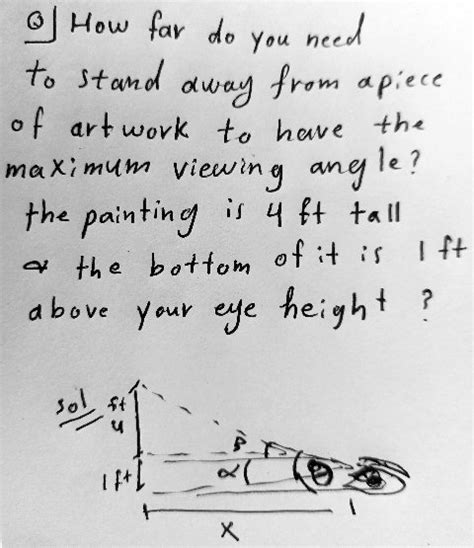 Q] How far do you need
to stand away from apiece
of artwork to have the
maximum viewing angle?
the painting is 4 ft tall
& the bottom of it is 1 ft
above your eye height ?
sol
ft
4
1 ft
β
α
θ
x